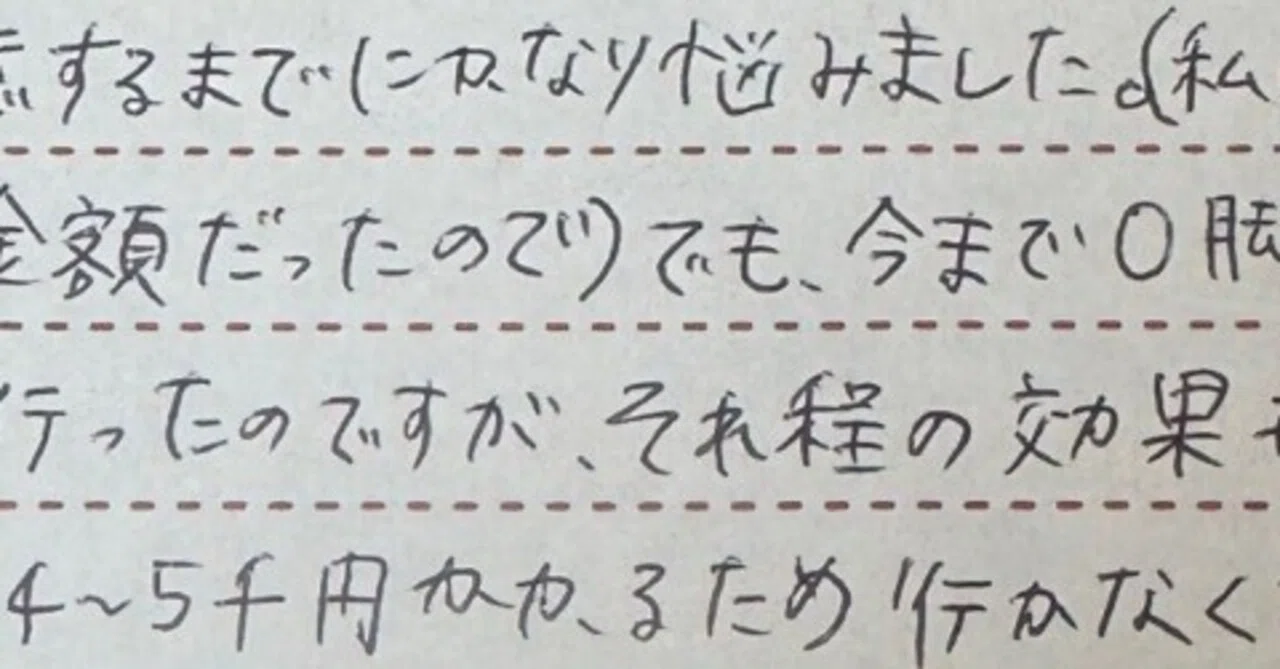 するまでにかなり悩みました。(私
金額だったので)でも、今までO脚
行ったのですが、それ程の効果
4~5千円かかるため行かなく